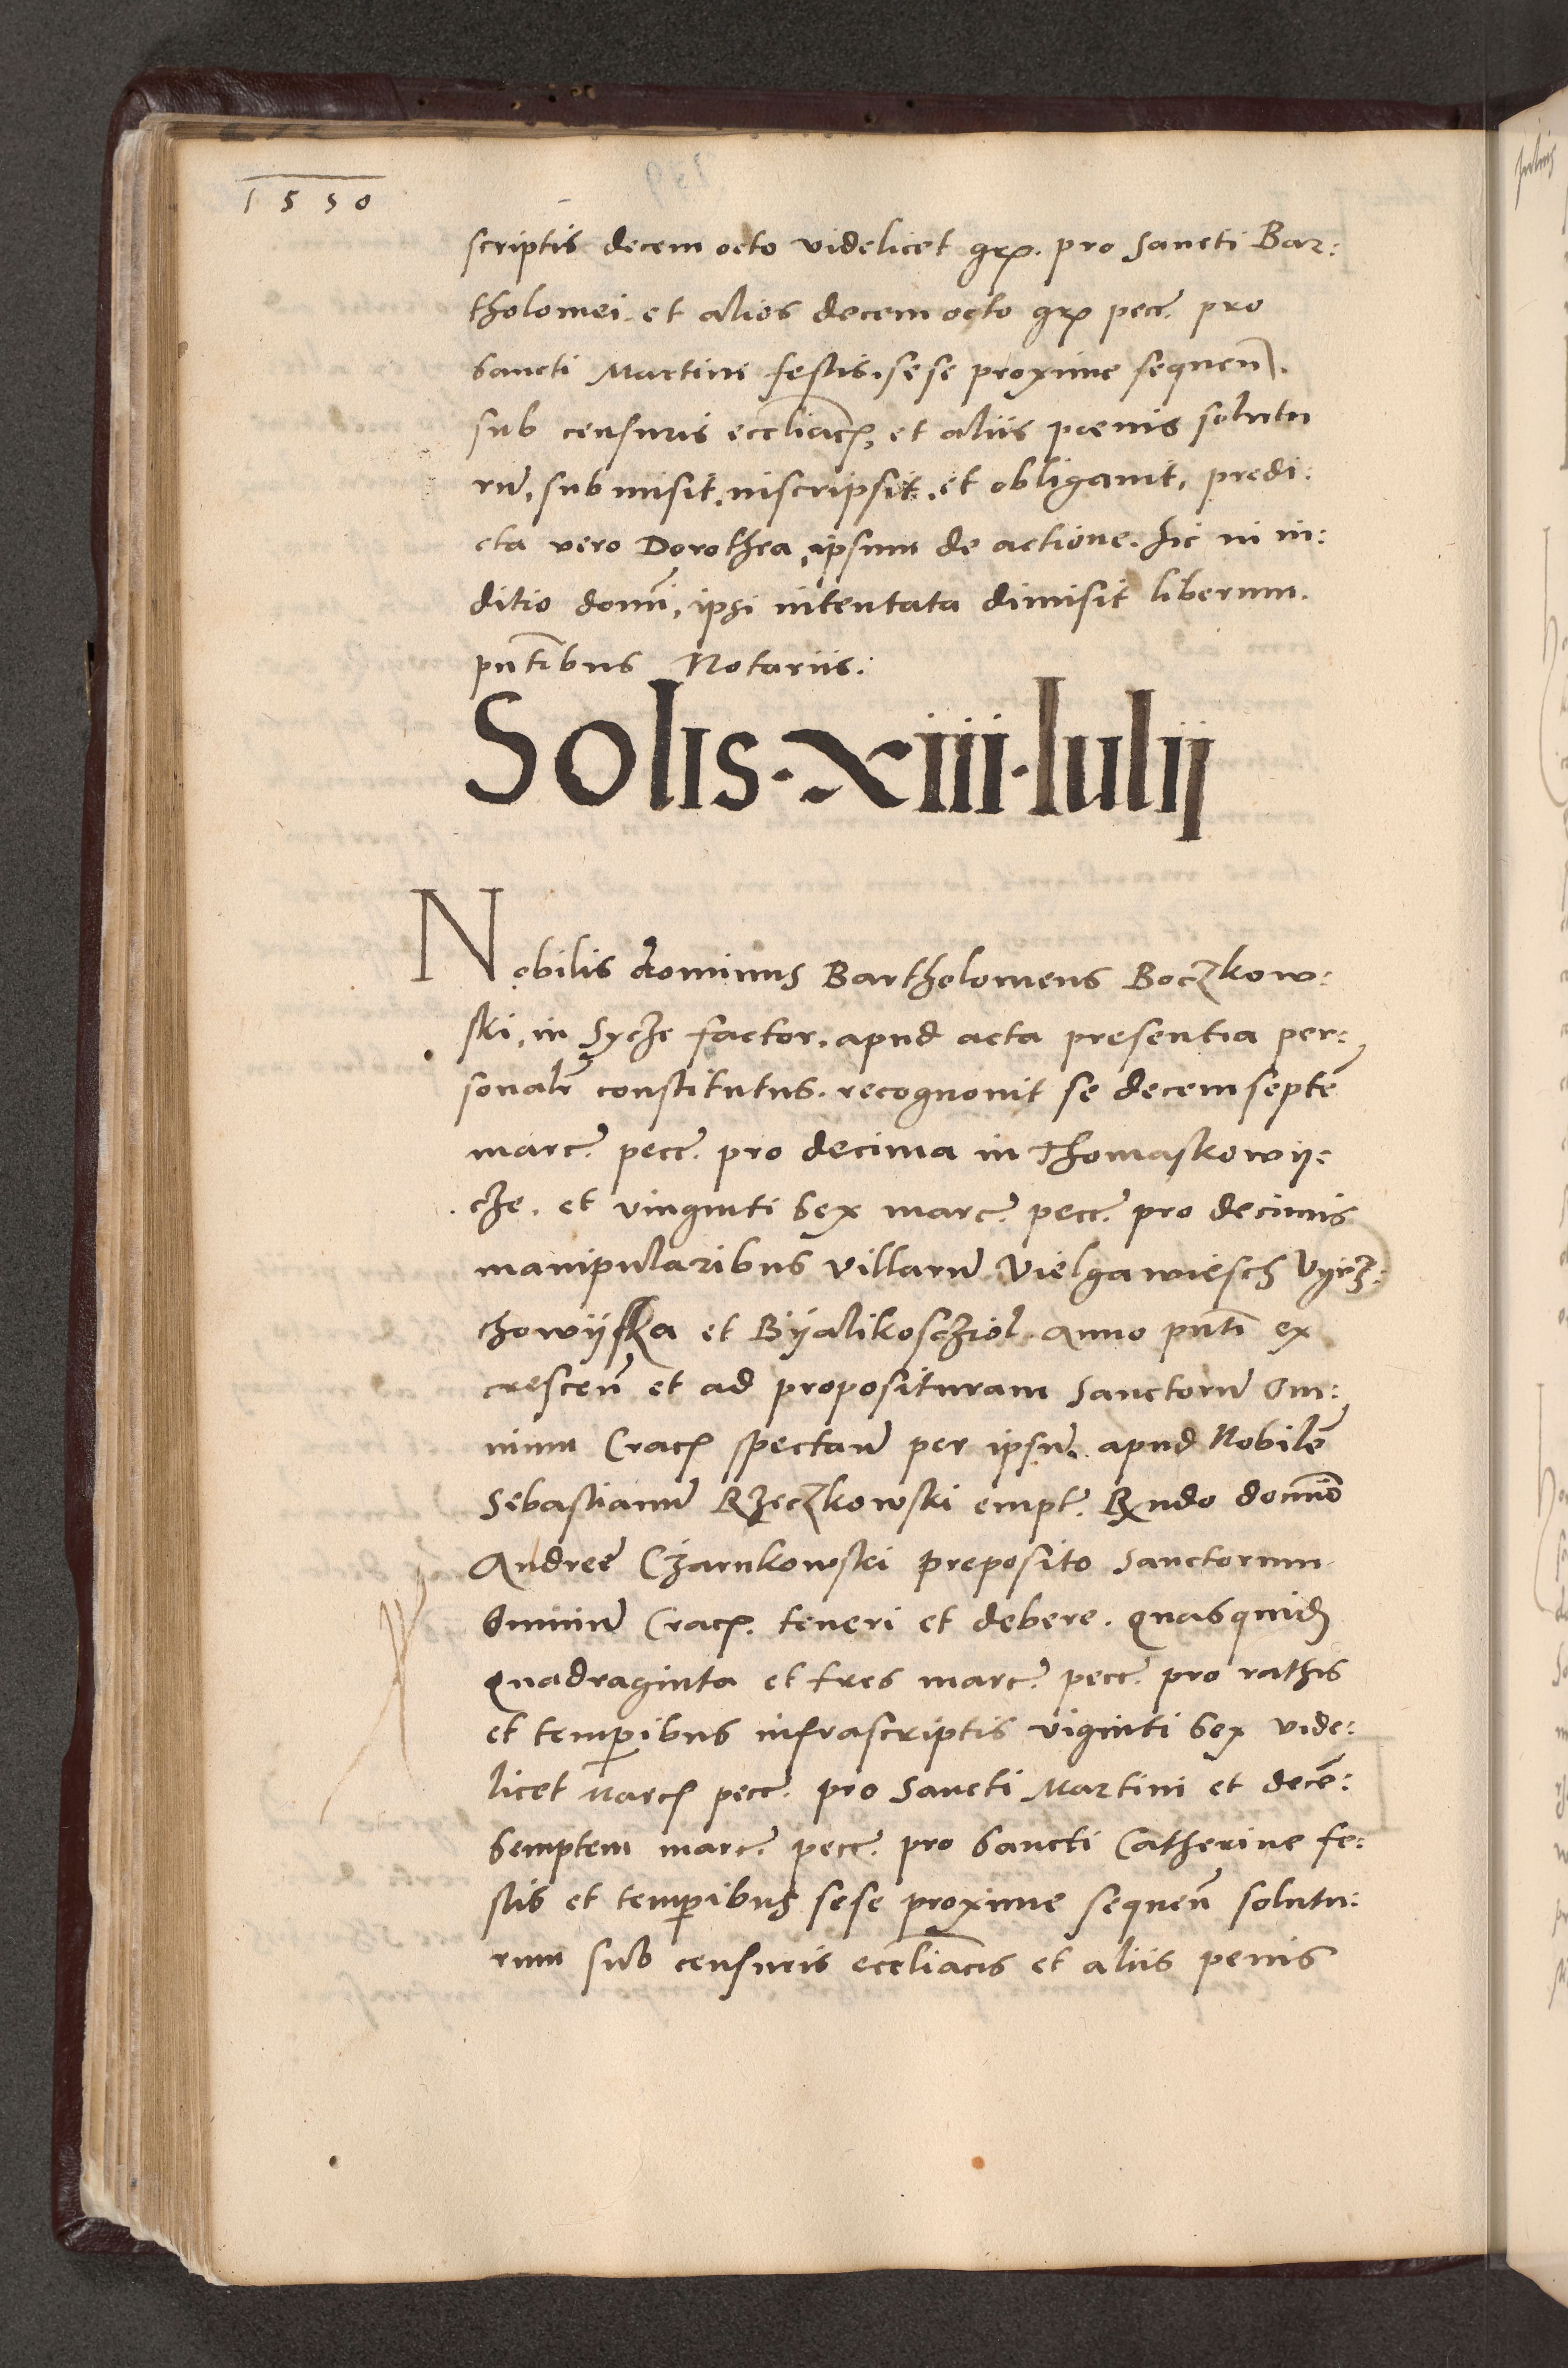 1550
scriptis decem octo videlicet grꝭ. pro Sancti Bar:
tholomei et alios decem octo grꝭ pecc̃. pro
Sancti Martini festis. sese proxime sequen̄.
sub censuris eccliacꝭ, et aliis poenis solutu
rū, submisit. inscripsit. et obligauit, predi:
cta vero Dorothea, ipsum de actione. hic in iu:
ditio domī, ipsi intentata dimisit liberum.
pn̄tibus Notariis:
Solis·xiiii·Iulij
Nobilis dominus Bartholomeus Boczkow:
ski, in Sycze factor, apud acta presentia per:
sonalr̄ constitutus. recognouit se decem septē
marc̃. pecc̃. pro decima in Thomaskowy:
cze. et vinginti sex marc̃. pecc̃. pro decimis
manipularibus villarū Vielgawiesch Vyrz:
chowijska et Bijalikoscziol. anno pn̄ti ex
crescen̄ et ad preposituram Sanctorū Om:
nium Cracꝭ spectan̄ per ipsū. apud Nobilē
Sebastianū Rzeczkowski empt̃. Rndo domīo
Andree Czarnkowski preposito Sanctorum
Omniū Cracꝭ. teneri et debere. Quasquidꝫ
quadraginta et tres marc̃. pecc̃. pro rathis
et temꝑibus infrascriptis viginti sex vide:
licet marcꝭ pecc̃. pro Sancti Martini et decē:
semptem marc̃. pecc̃. pro Sancti Catherine fe:
stis et temꝑibus sese proxime sequen̄ solutu:
rum sub censuris eccliacis et aliis penis